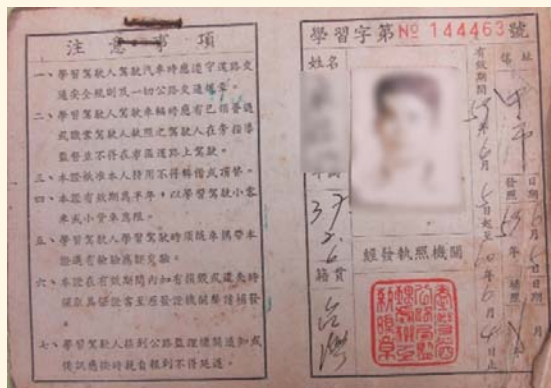 注意事項
一、學習駕駛人駕駛汽車時應遵守道路交
通安全規則及一切公路交通規章。
二、學習駕駛人駕駛車輛時應有已領普通
或職業駕駛人執照之駕駛人在旁指導
監督並不得在市區道路上駕駛。
三、本證執准本人持用不得轉借或頂替。
四、本證有效期為半年，以學習駕駛小客
車或小貨車為限。
五、學習駕駛人學習駕駛時須隨車攜帶本
證遇有檢驗應提交驗。
六、本證在有效期間內如有損毀或遺失時
須取具保證書至原發證機關聲請補發
七、學習駕駛人接到公路監理機關通知或
傳訊應按時親自報到不得延遲。
學習字第№ 144463號
姓名
37
2.6
籍貫
台灣
經發執照機關
有效期間
59年6月5日起至60年6月4日止
住址
發照日期
59年6月